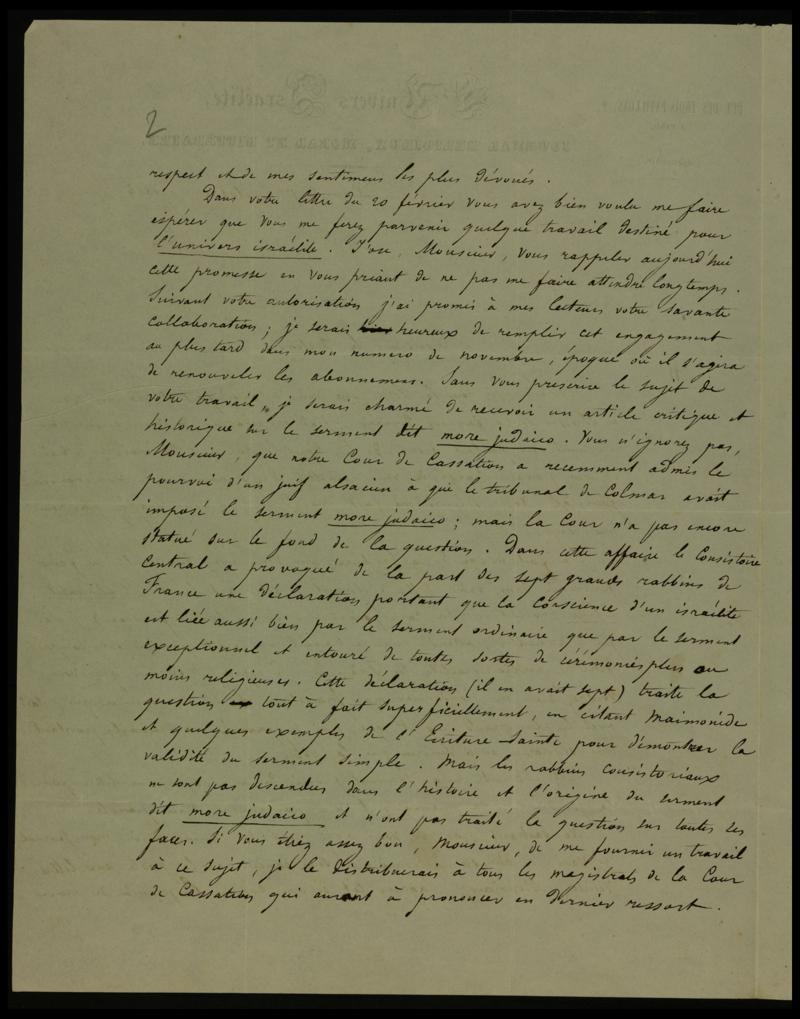 2
respect et de mes sentimens les plus dévoués.
Dans votre lettre du 20 février vous avez bien voulu me faire
espérer que vous me ferez parvenir quelque travail destiné pour
l'univers israélite. J'ose, Monsieur, vous rappeler aujourd'hui
cette promesse en vous priant de ne pas me faire attendre longtemps.
Suivant votre autorisation j'ai promis à mes lecteurs votre savante
collaboration; je serais heureux de remplir cet engagement
au plus tard dans mon numero de novembre, époque où il s'agira
de renouveler les abonnemens. Sans vous prescrire le sujet de
votre travail, je serais charmé de recevoir un article critique et
historique sur le serment dit more judaico. Vous n'ignorez pas,
Monsieur, que notre Cour de Cassation a recemment admis le
pourvoi d'un juif alsacien à qui le tribunal de Colmar avait
imposé le serment more judaico; mais la Cour n'a pas encore
statué sur le fond de la question. Dans cette affaire le Consistoire
Central a provoqué de la part des sept grands rabbins de
France une déclaration portant que la conscience d'un israélite
est liée aussi bien par le serment ordinaire que par le serment
exceptionnel et entouré de toutes sortes de cérémonies plus ou
moins religieuses. Cette déclaration (il en avait sept) traite la
question tout à fait superficiellement, en citant Maimonide
et quelques exemples de l'Ecriture-Sainte pour démontrer la
validité du serment simple. Mais les rabbins consistoriaux
ne sont pas descendus dans l'histoire et l'origine du serment
dit more judaico et n'ont pas traité la question sur toutes ses
faces. Si vous étiez assez bon, Monsieur, de me fournir un travail
à ce sujet, je le distribuerais à tous les magistrats de la Cour
de Cassation qui auront à prononcer en dernier ressort.